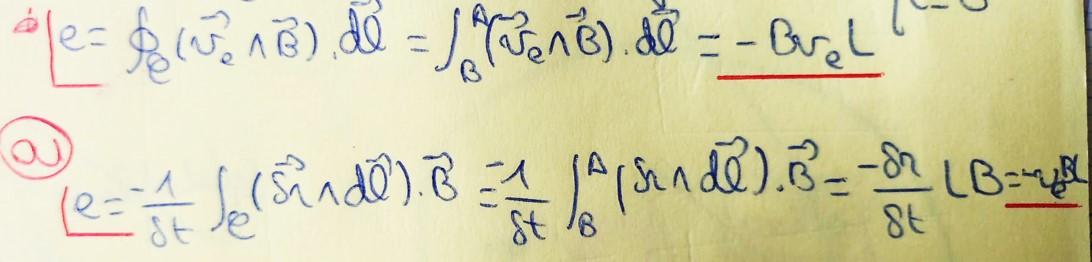 e = ∮_C (v⃗_e ∧ B⃗) . dl⃗ = ∫_B^A (v⃗_e ∧ B⃗) . dl⃗ = - B v_e L
a) e = -1/δt ∫_C (δr⃗ ∧ dl⃗) . B⃗ = -1/δt ∫_B^A (δr ∧ dl⃗) . B⃗ = -δr/δt L B = -v_e B L